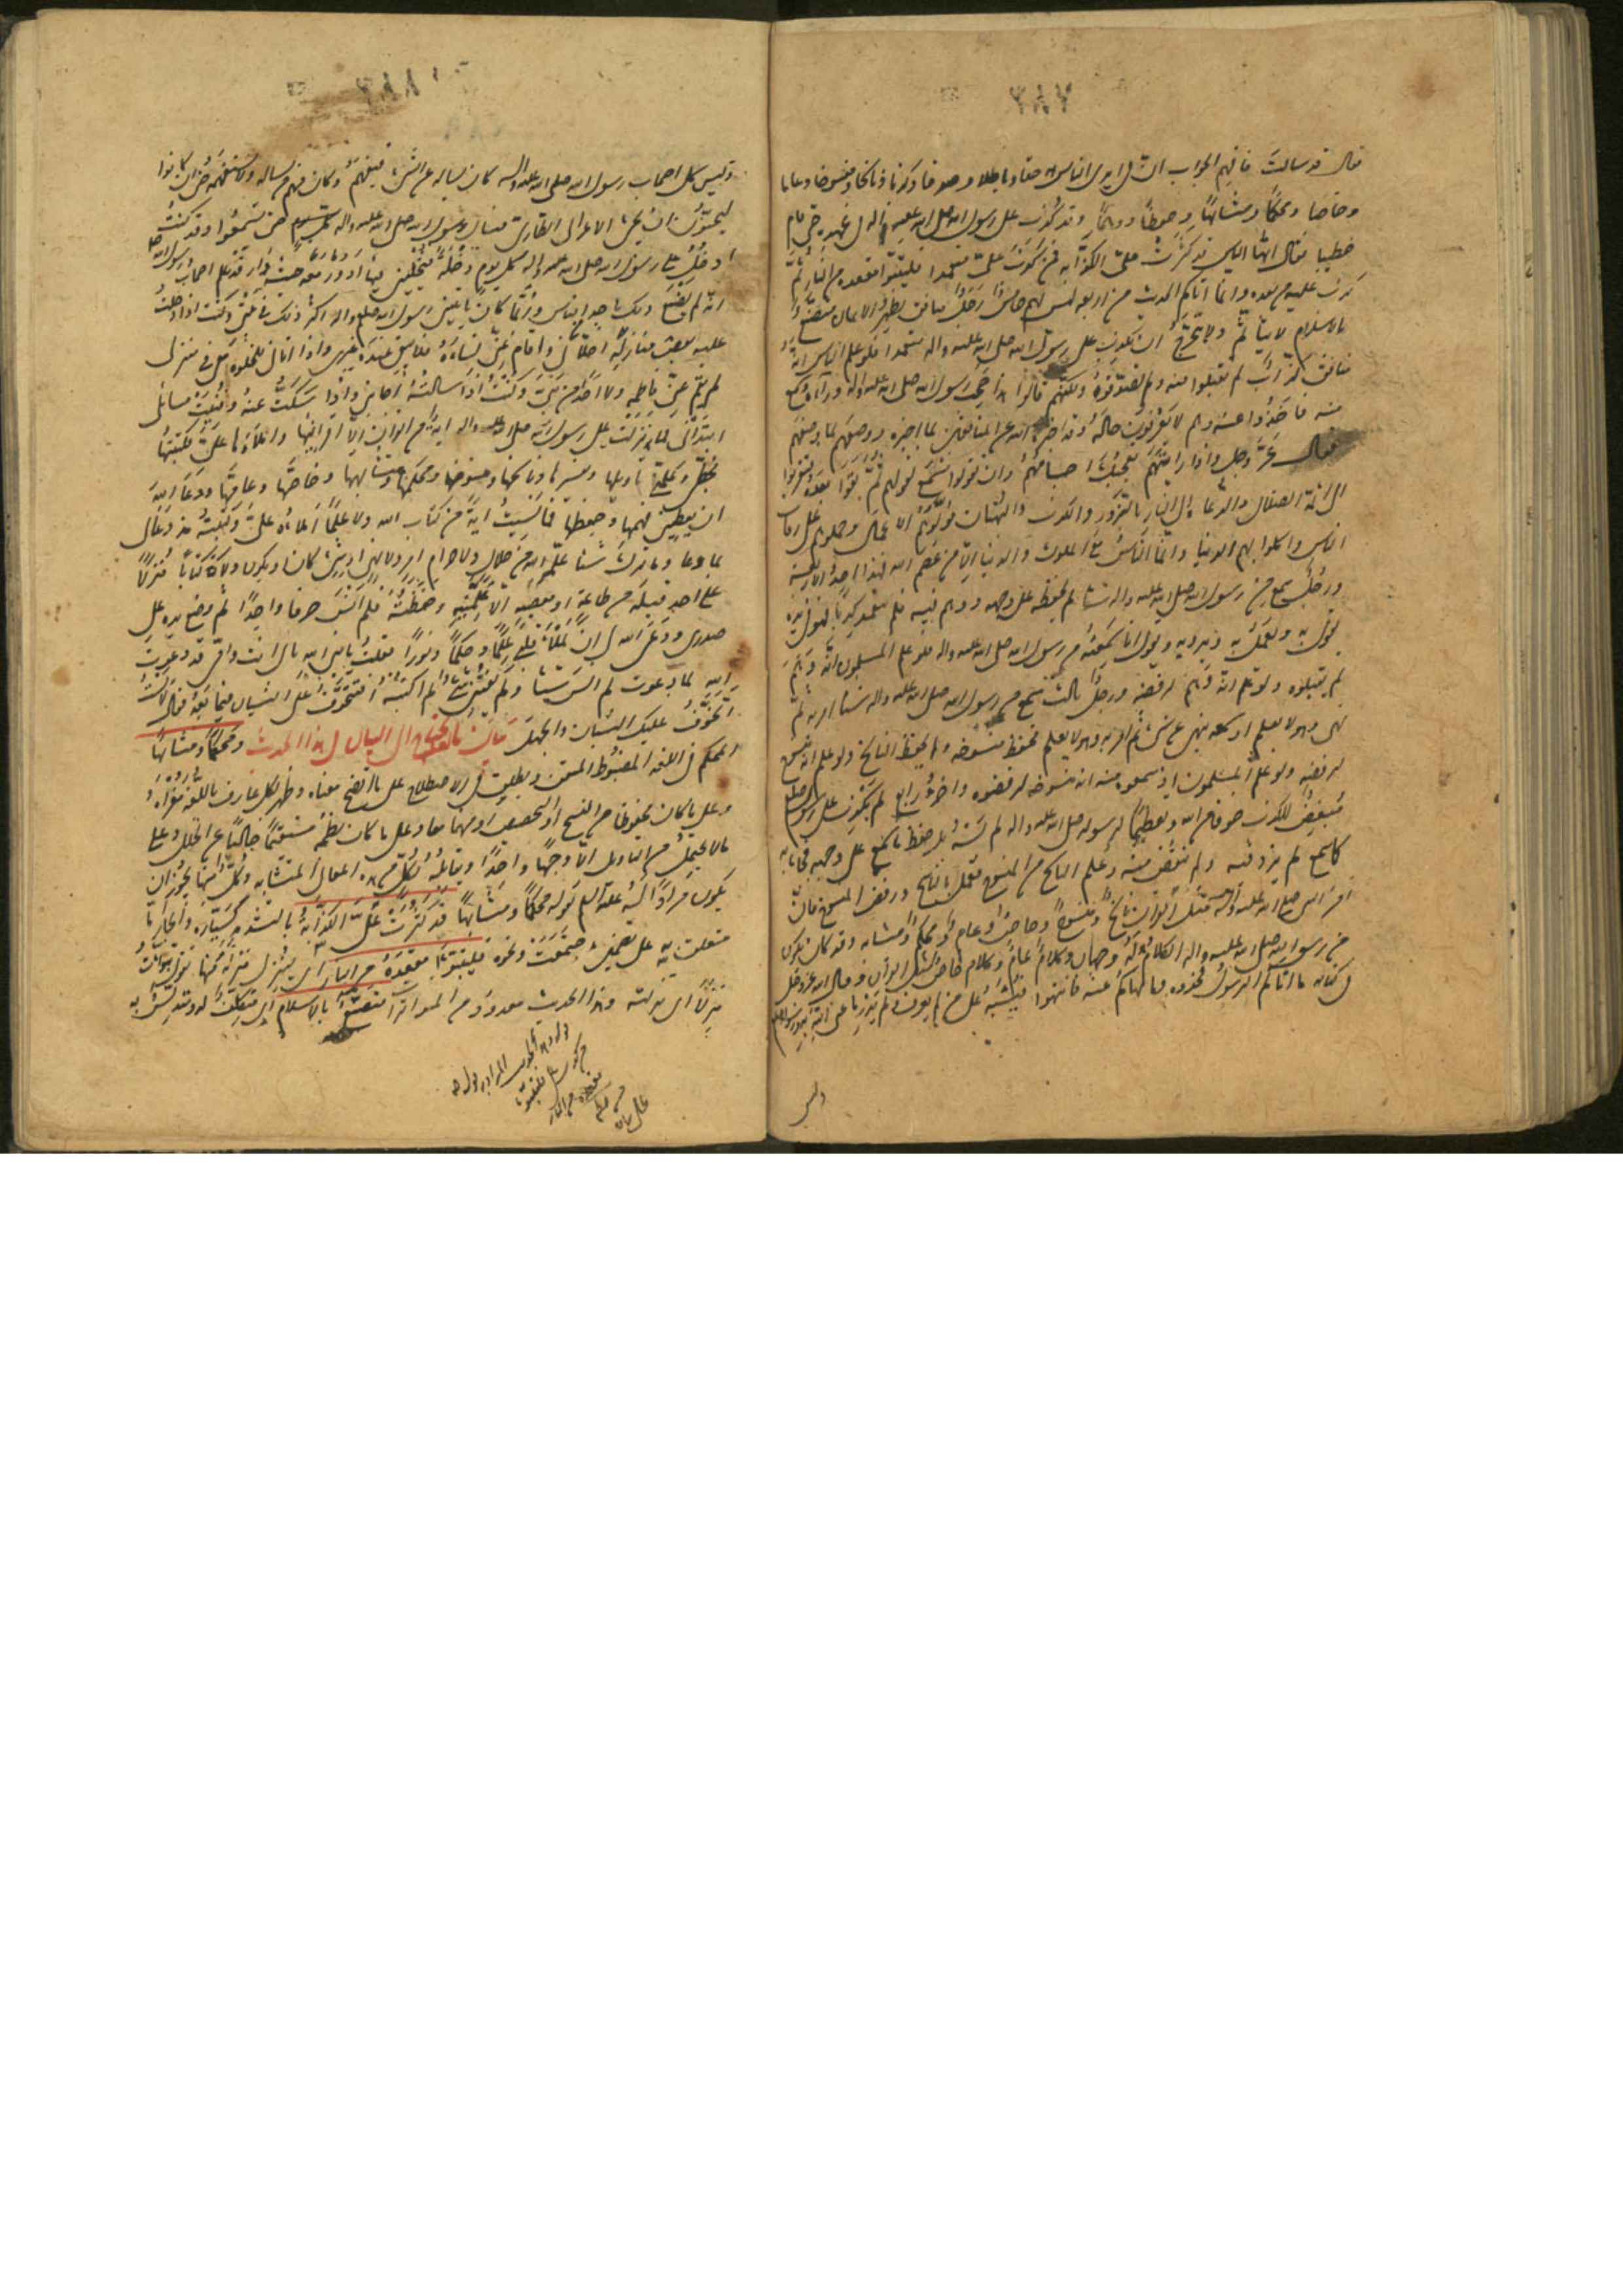 ٢٨٧
قال قد سالت فافهم الجواب ان فى ايدى الناس حقا وباطلا وصدقا وكذبا وناسخا ومنسوخا وعاما
وخاصا ومحكمًا ومتشابهًا وحفظًا ووهمًا وقد كُذِب على رسول الله صلى الله عليه واله فى عهده حتى قام
خطيبا فقال ايها الناس قد كثرت علىّ الكذّابه فمن كذب علىّ متعمدا فليتبوّأ مقعده من النار ثمّ
كذب عليه من بعده وانما اتاكم الحديث من اربعه ليس لهم خامس رَجُل منافق يظهر الايمان متصنّع
بالاسلام لا يتأثّم ولا يتحرّج أن يكذب على رسول الله صلى الله عليه واله متعمدا فلو علم الناس انّه
منافق كذّاب لم يقبلوا منه ولم يصدّقوه ولكنّهم قالوا هذا صَحِبَ رسول الله صلى الله عليه واله ورآه وسمع
منه فاخذوا عنه وهم لا يعرفون حاله وقد اخبر الله عن المنافقين بما اخبره ووصفهم بما وصفهم
فقال عزّ وجل واذا رايتهم تعجبك اجسامهم وان يقولوا تسمع لقولهم ثمّ بقوا بعده فتقربوا
الى ائمّة الضلال والدعاة الى النار بالزور والكذب والبهتان فولّوهم الاعمال وحملوهم على رقاب
الناس واكلوا بهم الدنيا وانّما الناس مع الملوك والدنيا الّا من عصم الله فهذا احد الاربعة
ورجُل سمع من رسول الله صلى الله عليه واله شيئا لم يحفظه على وجهه ووهم فيه فلم يتعمد كذبًا فهو فى يده
يقول به ويعمل به ويرويه ويقول انا سمعته من رسول الله صلى الله عليه واله فلو علم المسلمون انّه وَهِمَ
لم يقبلوه ولو علم انّه وَهِمَ لرفضه ورجل ثالث سمع من رسول الله صلى الله عليه واله شيئا امر به ثمّ
نهى وهو لا يعلم او سمعه ينهى عن شىء ثم امر به وهو لا يعلم فحفظ منسوخه ولم يحفظ الناسخ ولو علم انّه منسوخ
لرفضه ولو علم المسلمون اذ سمعوه منه انه منسوخ لرفضوه واخر رابع لم يكذب على رسول الله صلعم
مُبغِض للكذب خوفا من الله وتعظيمًا لرسوله صلى الله عليه واله لم ينسه بل حفظ ما سمع على وجهه فجاء به
كما سمع لم يزد فيه ولم ينقص منه وعلم الناسخ من المنسوخ فعمل بالناسخ ورفض المنسوخ فانّ
امر النبى صلى الله عليه وآله مثل القرآن ناسخ ومنسوخ وخاصّ وعام ومحكم ومتشابه وقد كان يكون
من رسول الله صلى الله عليه واله الكلام له وجهان وكلام عامّ وكلام خاصّ مثل القرآن وقال الله عز وجل
فى كتابه ما اتاكم الرسول فخذوه وما نهاكم عنه فانتهوا فيشتبه على من لم يعرف ولم يدر ما عنى الله به ورسوله صلعم
وليس
وليس كل اصحاب رسول الله صلى الله عليه واله كان يساله عن الشىء فيفهم وكان منهم من يساله ولا يستفهمه حتى ان كانوا
ليحبّون ان يجىء الاعرابى الطارى فيسال رسول الله صلى الله عليه واله حتى يسمعوا وقد كنت
ادخل على رسول الله صلى الله عليه واله كل يوم دخلة فيخلينى فيها ادور معه حيث دار قد علم اصحاب رسول الله صلعم
انّه لم يصنع ذلك باحد من الناس وربّما كان ياتينى رسول الله صلعم واله اكثر ذلك فى بيتى وكنت اذا دخلت
عليه بعض منازله اخلانى واقام عنّى نساءه فلا يبقى عنده غيرى واذا اتانى للخلوه معى فى منزلى
لم تقم عنّى فاطمه ولا احد من بَنِىّ وكنت اذا سالته اجابنى واذا سكتُّ عنه وفنيت مسائلى
ابتدأنى فما نزلت على رسول الله صلى الله عليه واله ايةٌ من القران الّا اقرانيها واملاها علىّ فكتبتها
بخطّى وعلّمنى تاويلها وتفسيرها وناسخها ومنسوخها ومحكمها ومتشابهها وخاصّها وعامّها ودعا الله
ان يعطينى فهمها وحفظها فما نسيت ايةً من كتاب الله ولا علمًا املاه علىّ وكتبته منذ دعا لى
بما دعا وما ترك شيئا علّمه الله من حلال ولا حرام امر ولا نهى او شىء كان او يكون ولا كتابا منزلًا
على احد قبله من طاعة او معصيه الّا علّمنيه وحفظته فلم انس حرفا واحدًا ثم وضع يده على
صدرى ودعى الله لى ان يملأ قلبى علمًا وحكمًا ونورًا فقلت يا نبى الله بابى انت وامّى قد دعوت
الله لما دعوت لم انس شيئا ولم يفتنى شىء لم اكتبه افتتخوّف علىّ النسيان فيما بعد فقال لا لست
اتخوّف عليك النسيان والجهل مآنٌ بالفحص الى البيان لهذا الحديث ومحكمًا ومتشابهًا
المحكم فى اللغه المضبوط المتقن ويطلق فى الاصطلاح على ما اتضح معناه وظهر لكل عارف باللغه مغزاه و
وعلى ما كان محفوظا من النسخ او التخصيص او منهما معا وعلى ما كان نظمه مستقيمًا خاليًا عن الخلل وعلى
ما لا يحتمل من التاويل الّا وجهًا واحدًا ويقابله بكلّ من هذه المعانى المتشابه وكلّ منها يجوز ان
يكون مرادًا له عليه السلم بقوله محكمًا ومتشابهًا قد كثرت علىّ الكذّابة بالتشديد كسيّارة والجار اما
متعلق به على تضمين اجتمعت ونحوه فليتبوّأ مقعده من النار اى لينزل منزله منها يقول تبوّأت
منزلًا اى نزلته وهذا الحديث معدود من المتواترات متصنّع بالاسلام اى متكلّف له ومتدلّس به